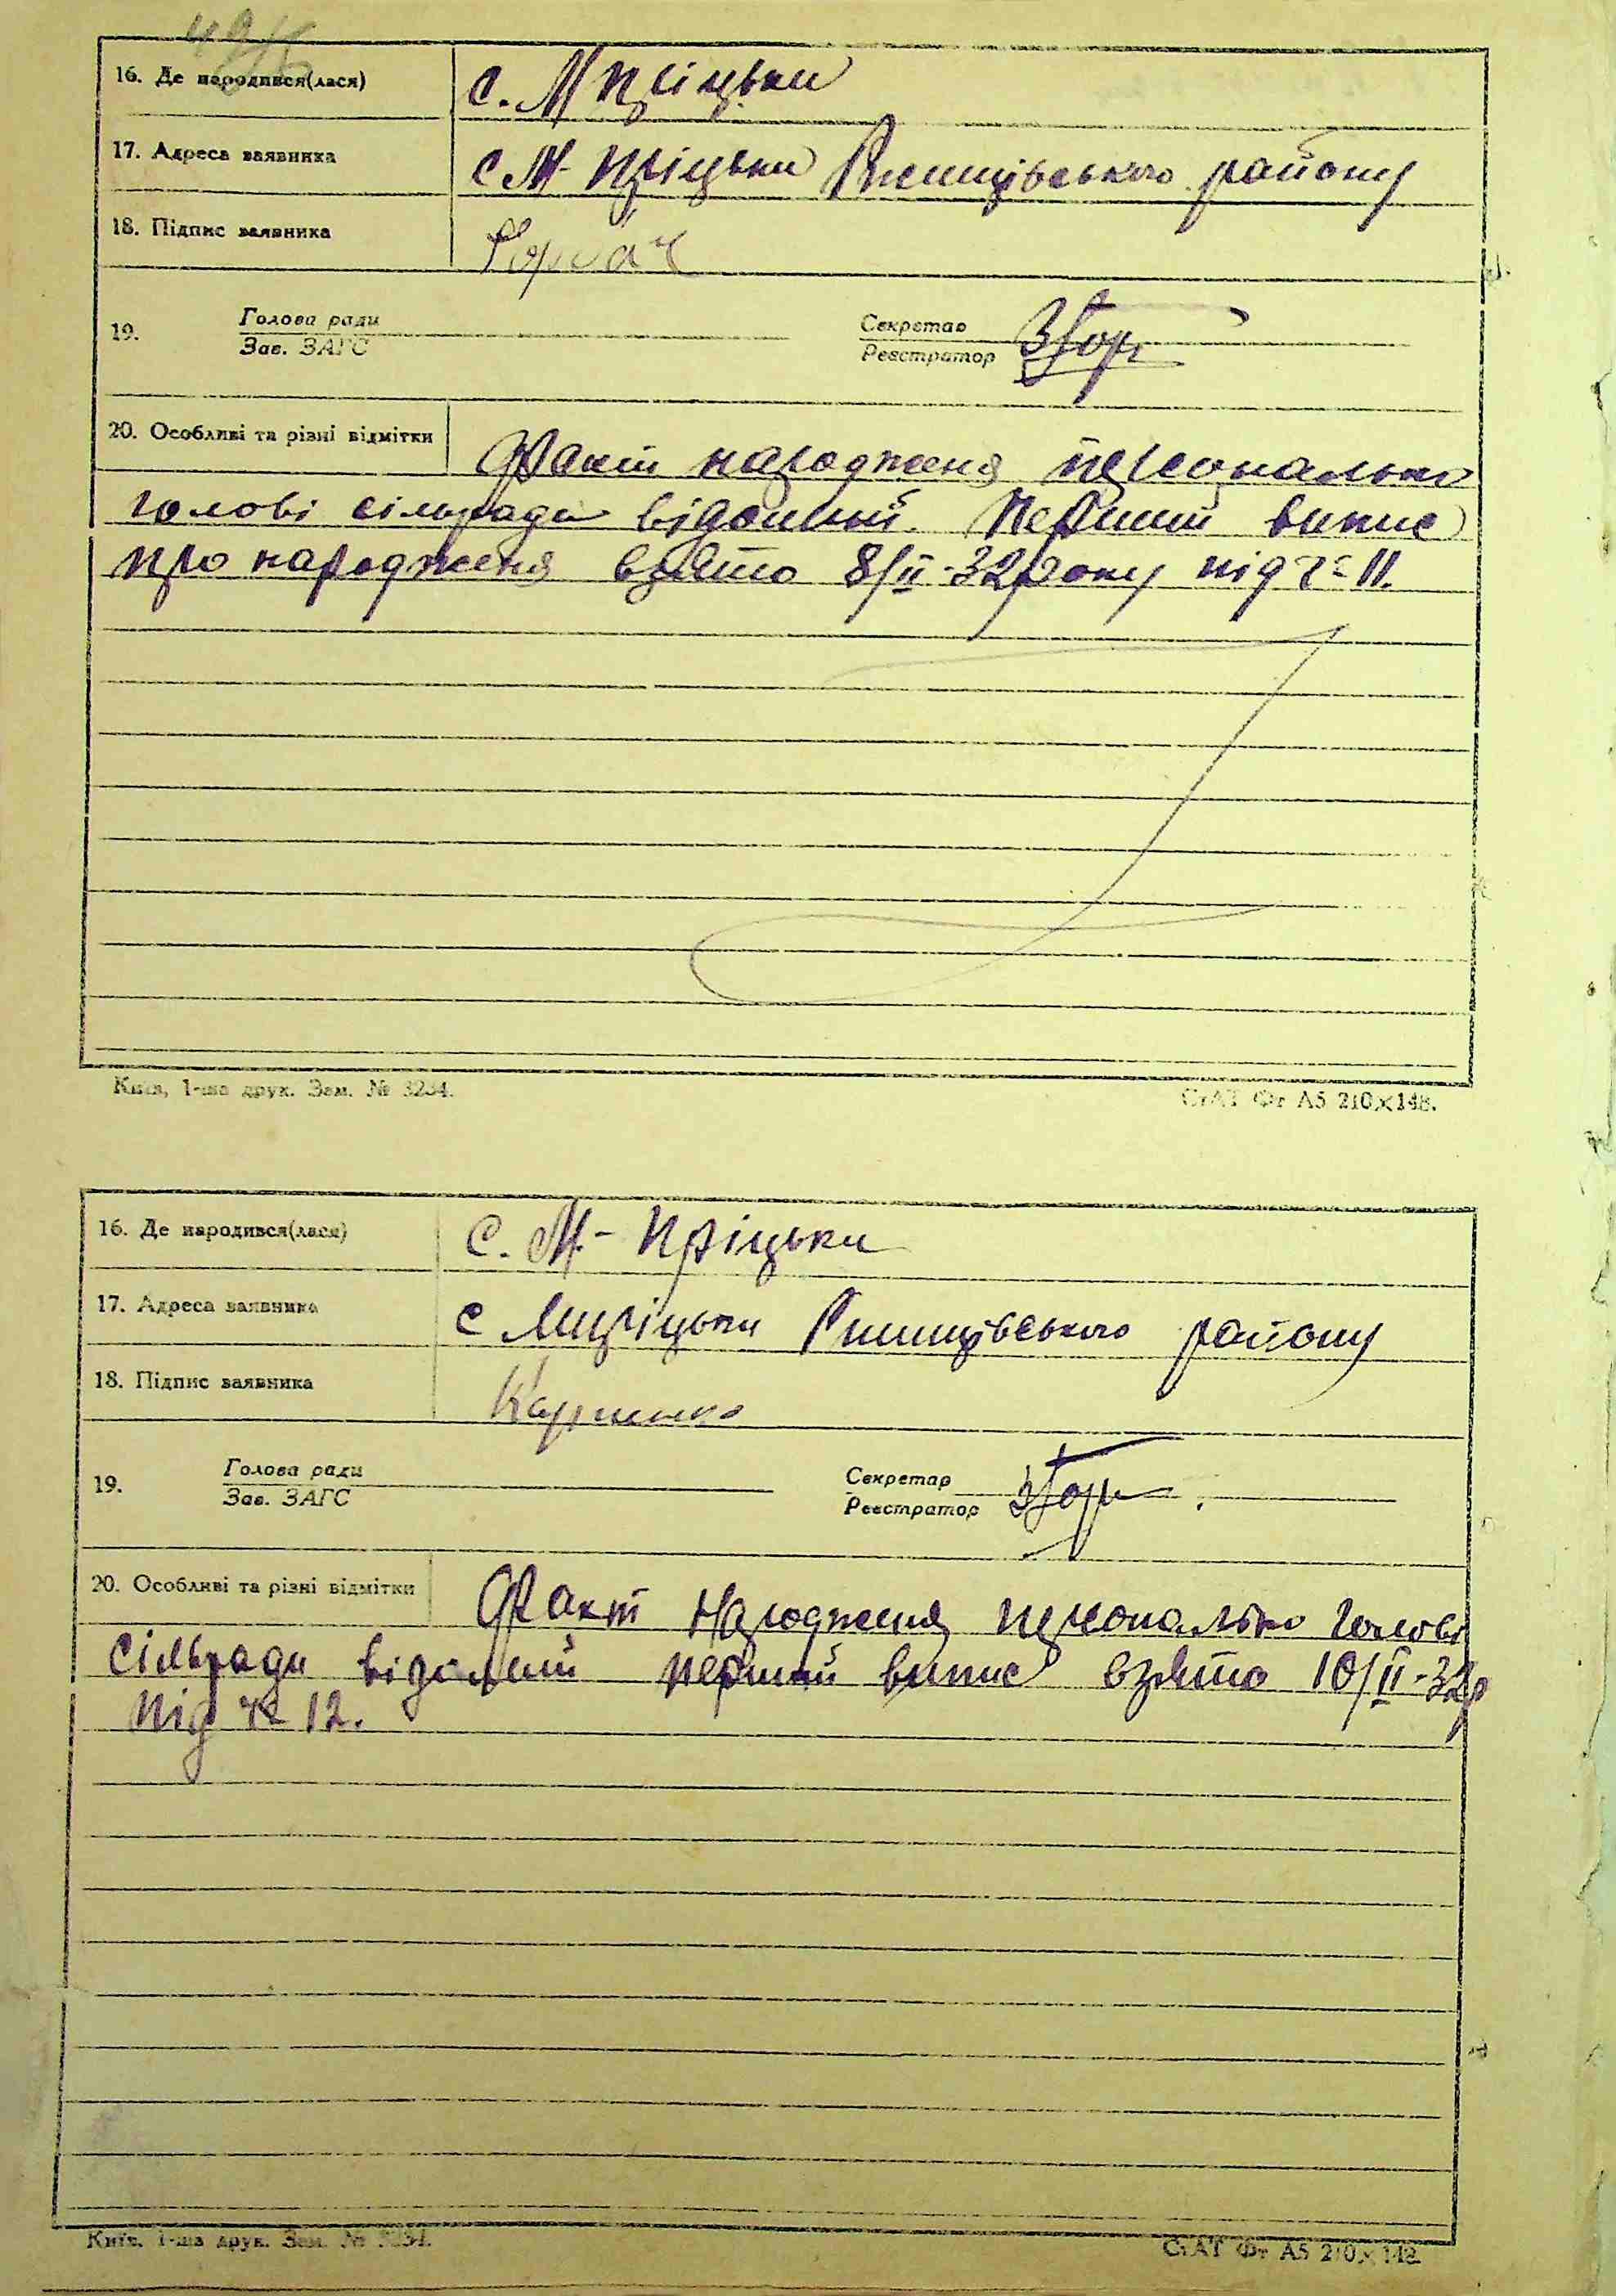 16. Де народився(лася) с. М Пріцьки
17. Адреса заявника с М- Пріцьки Ржищівського району
18. Підпис заявника Горбач
19. Голова ради Секретар
Зав. ЗАГС Реєстратор
20. Особливі та різні відмітки Факт народженя персонально
голові сільради відомий. Перший випис
про народженя взято 8/II-32 року під № 11.
Київ, 1-ша друк. Зам. № 3234. СтАТ Фт А5 210×148.
16. Де народився(лася) с. М.- Пріцьки
17. Адреса заявника с Мпріцьки Ржищівського району
18. Підпис заявника
19. Голова ради Секретар
Зав. ЗАГС Реєстратор
20. Особливі та різні відмітки Факт народженя персонально голові
сільради відомий перший випис взято 10/II-32р
під № 12.
Київ, 1-ша друк. Зам. № 3234. СтАТ Фт А5 210×148.